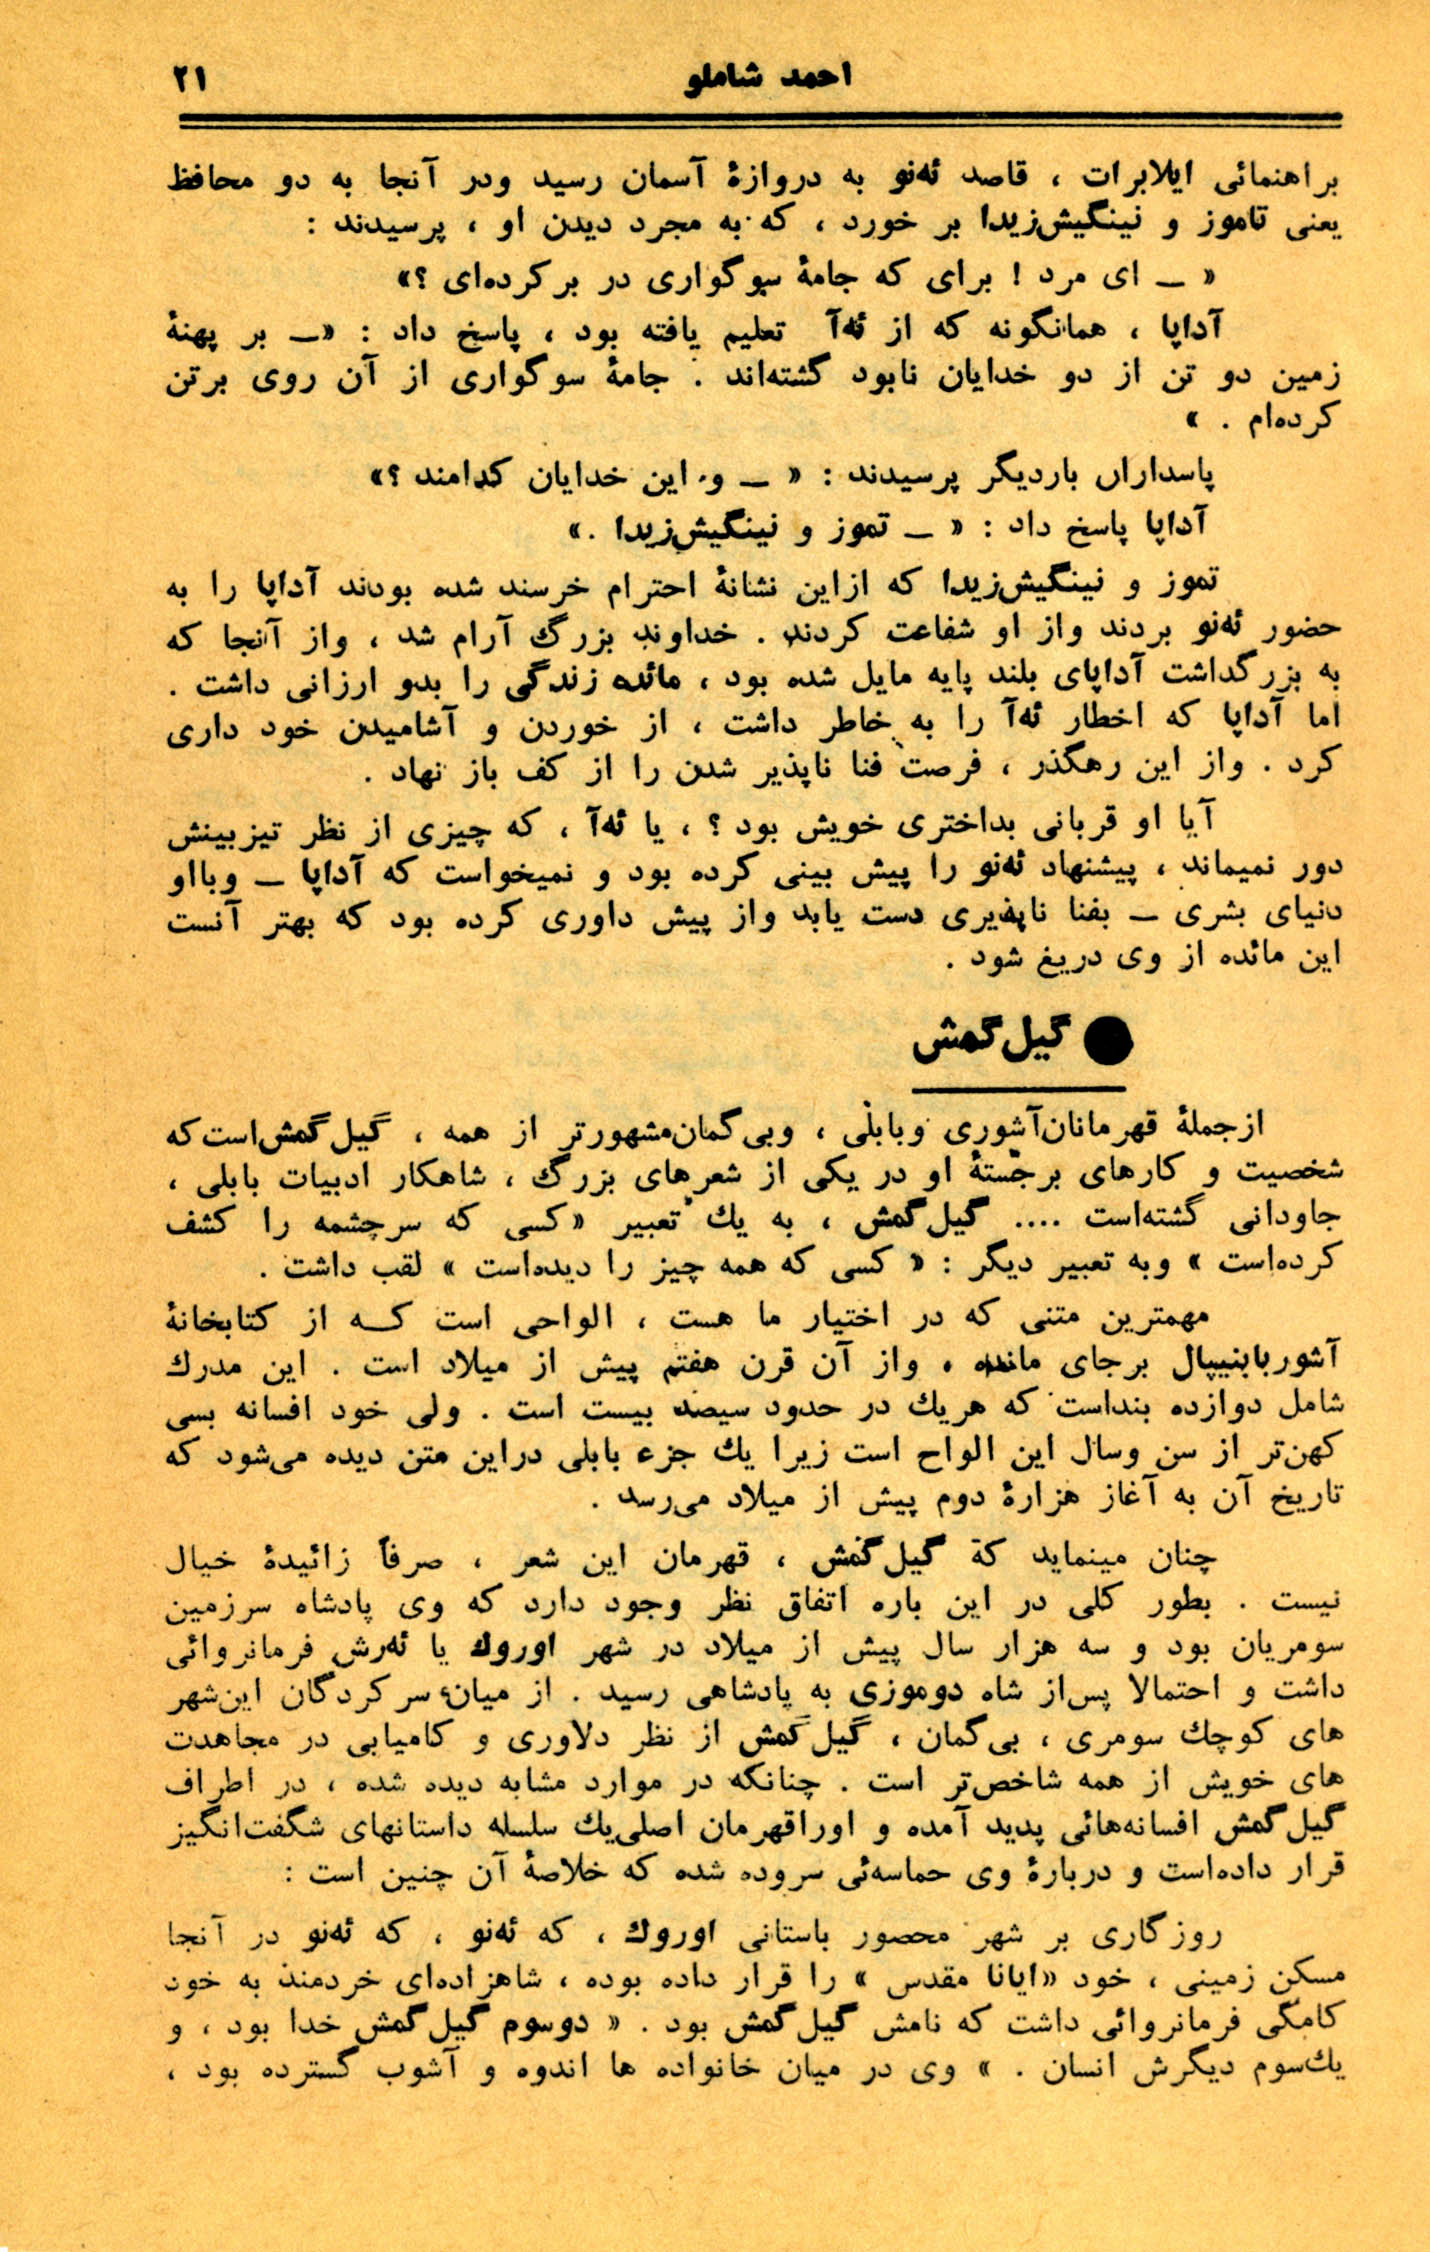 احمد شاملو
۲۱
براهنمائی ایلابرات ، قاصد ئه‌نو به دروازهٔ آسمان رسید ودر آنجا به دو محافظ
یعنی تاموز و نینگیش‌زیدا بر خورد ، که به مجرد دیدن او ، پرسیدند :
« ــ ای مرد ! برای که جامهٔ سوگواری در برکرده‌ای ؟»
آداپا ، همانگونه که از ئه‌آ تعلیم یافته بود ، پاسخ داد : «ــ بر پهنهٔ
زمین دو تن از دو خدایان نابود گشته‌اند . جامهٔ سوگواری از آن روی برتن
کرده‌ام . »
پاسداران باردیگر پرسیدند : « ــ و این خدایان کدامند ؟»
آداپا پاسخ داد : « ــ تموز و نینگیش‌زیدا .»
تموز و نینگیش‌زیدا که ازاین نشانهٔ احترام خرسند شده بودند آداپا را به
حضور ئه‌نو بردند واز او شفاعت کردند . خداوند بزرگ آرام شد ، واز آنجا که
به بزرگداشت آداپای بلند پایه مایل شده بود ، مائده زندگی را بدو ارزانی داشت .
اما آداپا که اخطار ئه‌آ را به خاطر داشت ، از خوردن و آشامیدن خود داری
کرد . واز این رهگذر ، فرصت فنا ناپذیر شدن را از کف باز نهاد .
آیا او قربانی بداختری خویش بود ؟ ، یا ئه‌آ ، که چیزی از نظر تیزبینش
دور نمیماند ، پیشنهاد ئه‌نو را پیش بینی کرده بود و نمیخواست که آداپا ــ وبااو
دنیای بشری ــ بفنا ناپذیری دست یابد واز پیش داوری کرده بود که بهتر آنست
این مائده از وی دریغ شود .
● گیل‌گمش
ازجملهٔ قهرمانان‌آشوری وبابلی ، وبی‌گمان‌مشهورتر از همه ، گیل‌گمش‌است‌که
شخصیت و کارهای برجستهٔ او در یکی از شعرهای بزرگ ، شاهکار ادبیات بابلی ،
جاودانی گشته‌است .... گیل‌گمش ، به یك تعبیر «کسی که سرچشمه را کشف
کرده‌است » وبه تعبیر دیگر : « کسی که همه چیز را دیده‌است » لقب داشت .
مهمترین متنی که در اختیار ما هست ، الواحی است کــه از کتابخانهٔ
آشوربانیپال برجای مانده . واز آن قرن هفتم پیش از میلاد است . این مدرك
شامل دوازده بنداست که هریك در حدود سیصد بیست است . ولی خود افسانه بسی
کهن‌تر از سن وسال این الواح است زیرا یك جزء بابلی دراین متن دیده می‌شود که
تاریخ آن به آغاز هزارهٔ دوم پیش از میلاد می‌رسد .
چنان مینماید که گیل‌گمش ، قهرمان این شعر ، صرفاً زائیدهٔ خیال
نیست . بطور کلی در این باره اتفاق نظر وجود دارد که وی پادشاه سرزمین
سومریان بود و سه هزار سال پیش از میلاد در شهر اوروك یا ئه‌رش فرمانروائی
داشت و احتمالا پس‌از شاه دوموزی به پادشاهی رسید . از میان سرکردگان این‌شهر
های کوچك سومری ، بی‌گمان ، گیل‌گمش از نظر دلاوری و کامیابی در مجاهدت
های خویش از همه شاخص‌تر است . چنانکه در موارد مشابه دیده شده ، در اطراف
گیل‌گمش افسانه‌هائی پدید آمده و اوراقهرمان اصلی‌یك سلسله داستانهای شگفت‌انگیز
قرار داده‌است و دربارهٔ وی حماسه‌ئی سروده شده که خلاصهٔ آن چنین است :
روزگاری بر شهر محصور باستانی اوروك ، که ئه‌نو ، که ئه‌نو در آنجا
مسکن زمینی ، خود «ایانا مقدس » را قرار داده بوده ، شاهزاده‌ای خردمند به خود
کامگی فرمانروائی داشت که نامش گیل‌گمش بود . « دوسوم گیل‌گمش خدا بود ، و
یك‌سوم دیگرش انسان . » وی در میان خانواده ها اندوه و آشوب گسترده بود ،